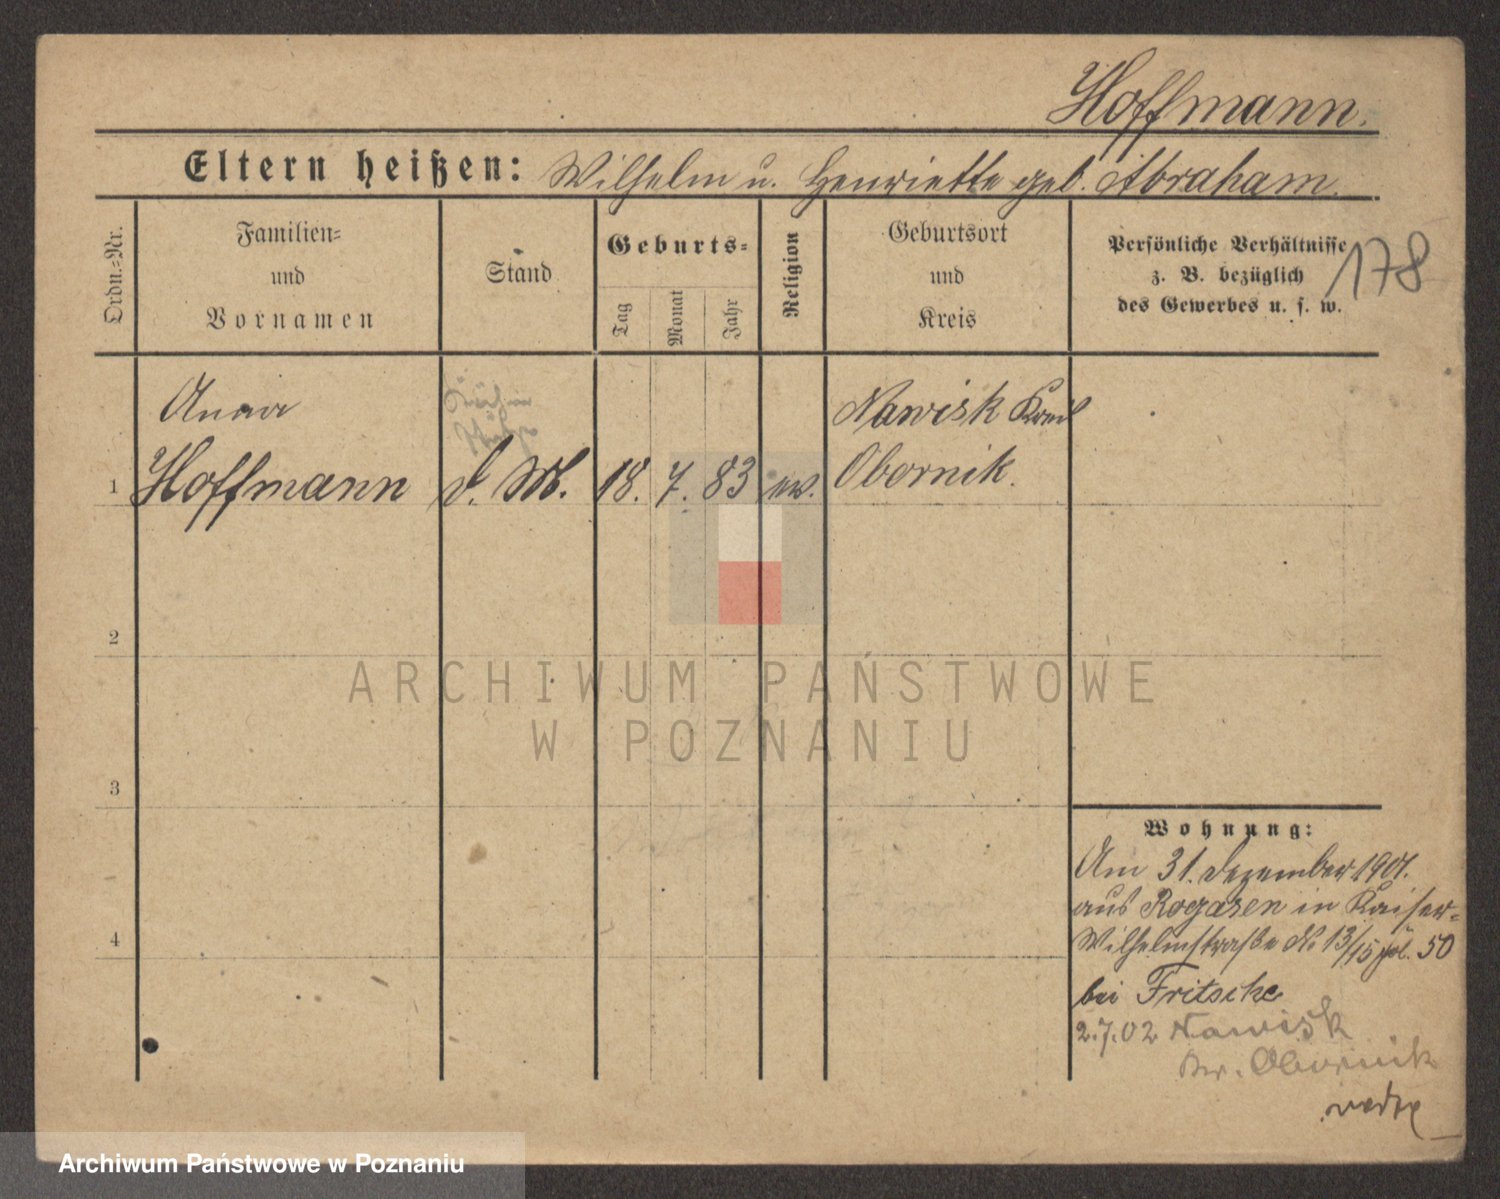 Hoffmann.
Eltern heißen: Wilhelm u. Henriette geb. Abraham.
Ordn.=Nr.
Familien=
und
Vornamen
Stand
Geburts=
Tag
Monat
Jahr
Religion
Geburtsort
und
Kreis
Persönliche Verhältnisse
z. B. bezüglich
des Gewerbes u. s. w.
178
Anna
Nawisk Kreis
1 Hoffmann d. M. 18. 7. 83 ev. Obornik.
2
3
4
Wohnung:
Am 31. Dezember 1901.
aus Rogasen in Kaiser=
Wilhelmstraße No 13/15 pol. 50
bei Fritsche
2.7.02 Nawisk
Kr. Obornik
ARCHIWUM PAŃSTWOWE
W POZNANIU
Archiwum Państwowe w Poznaniu